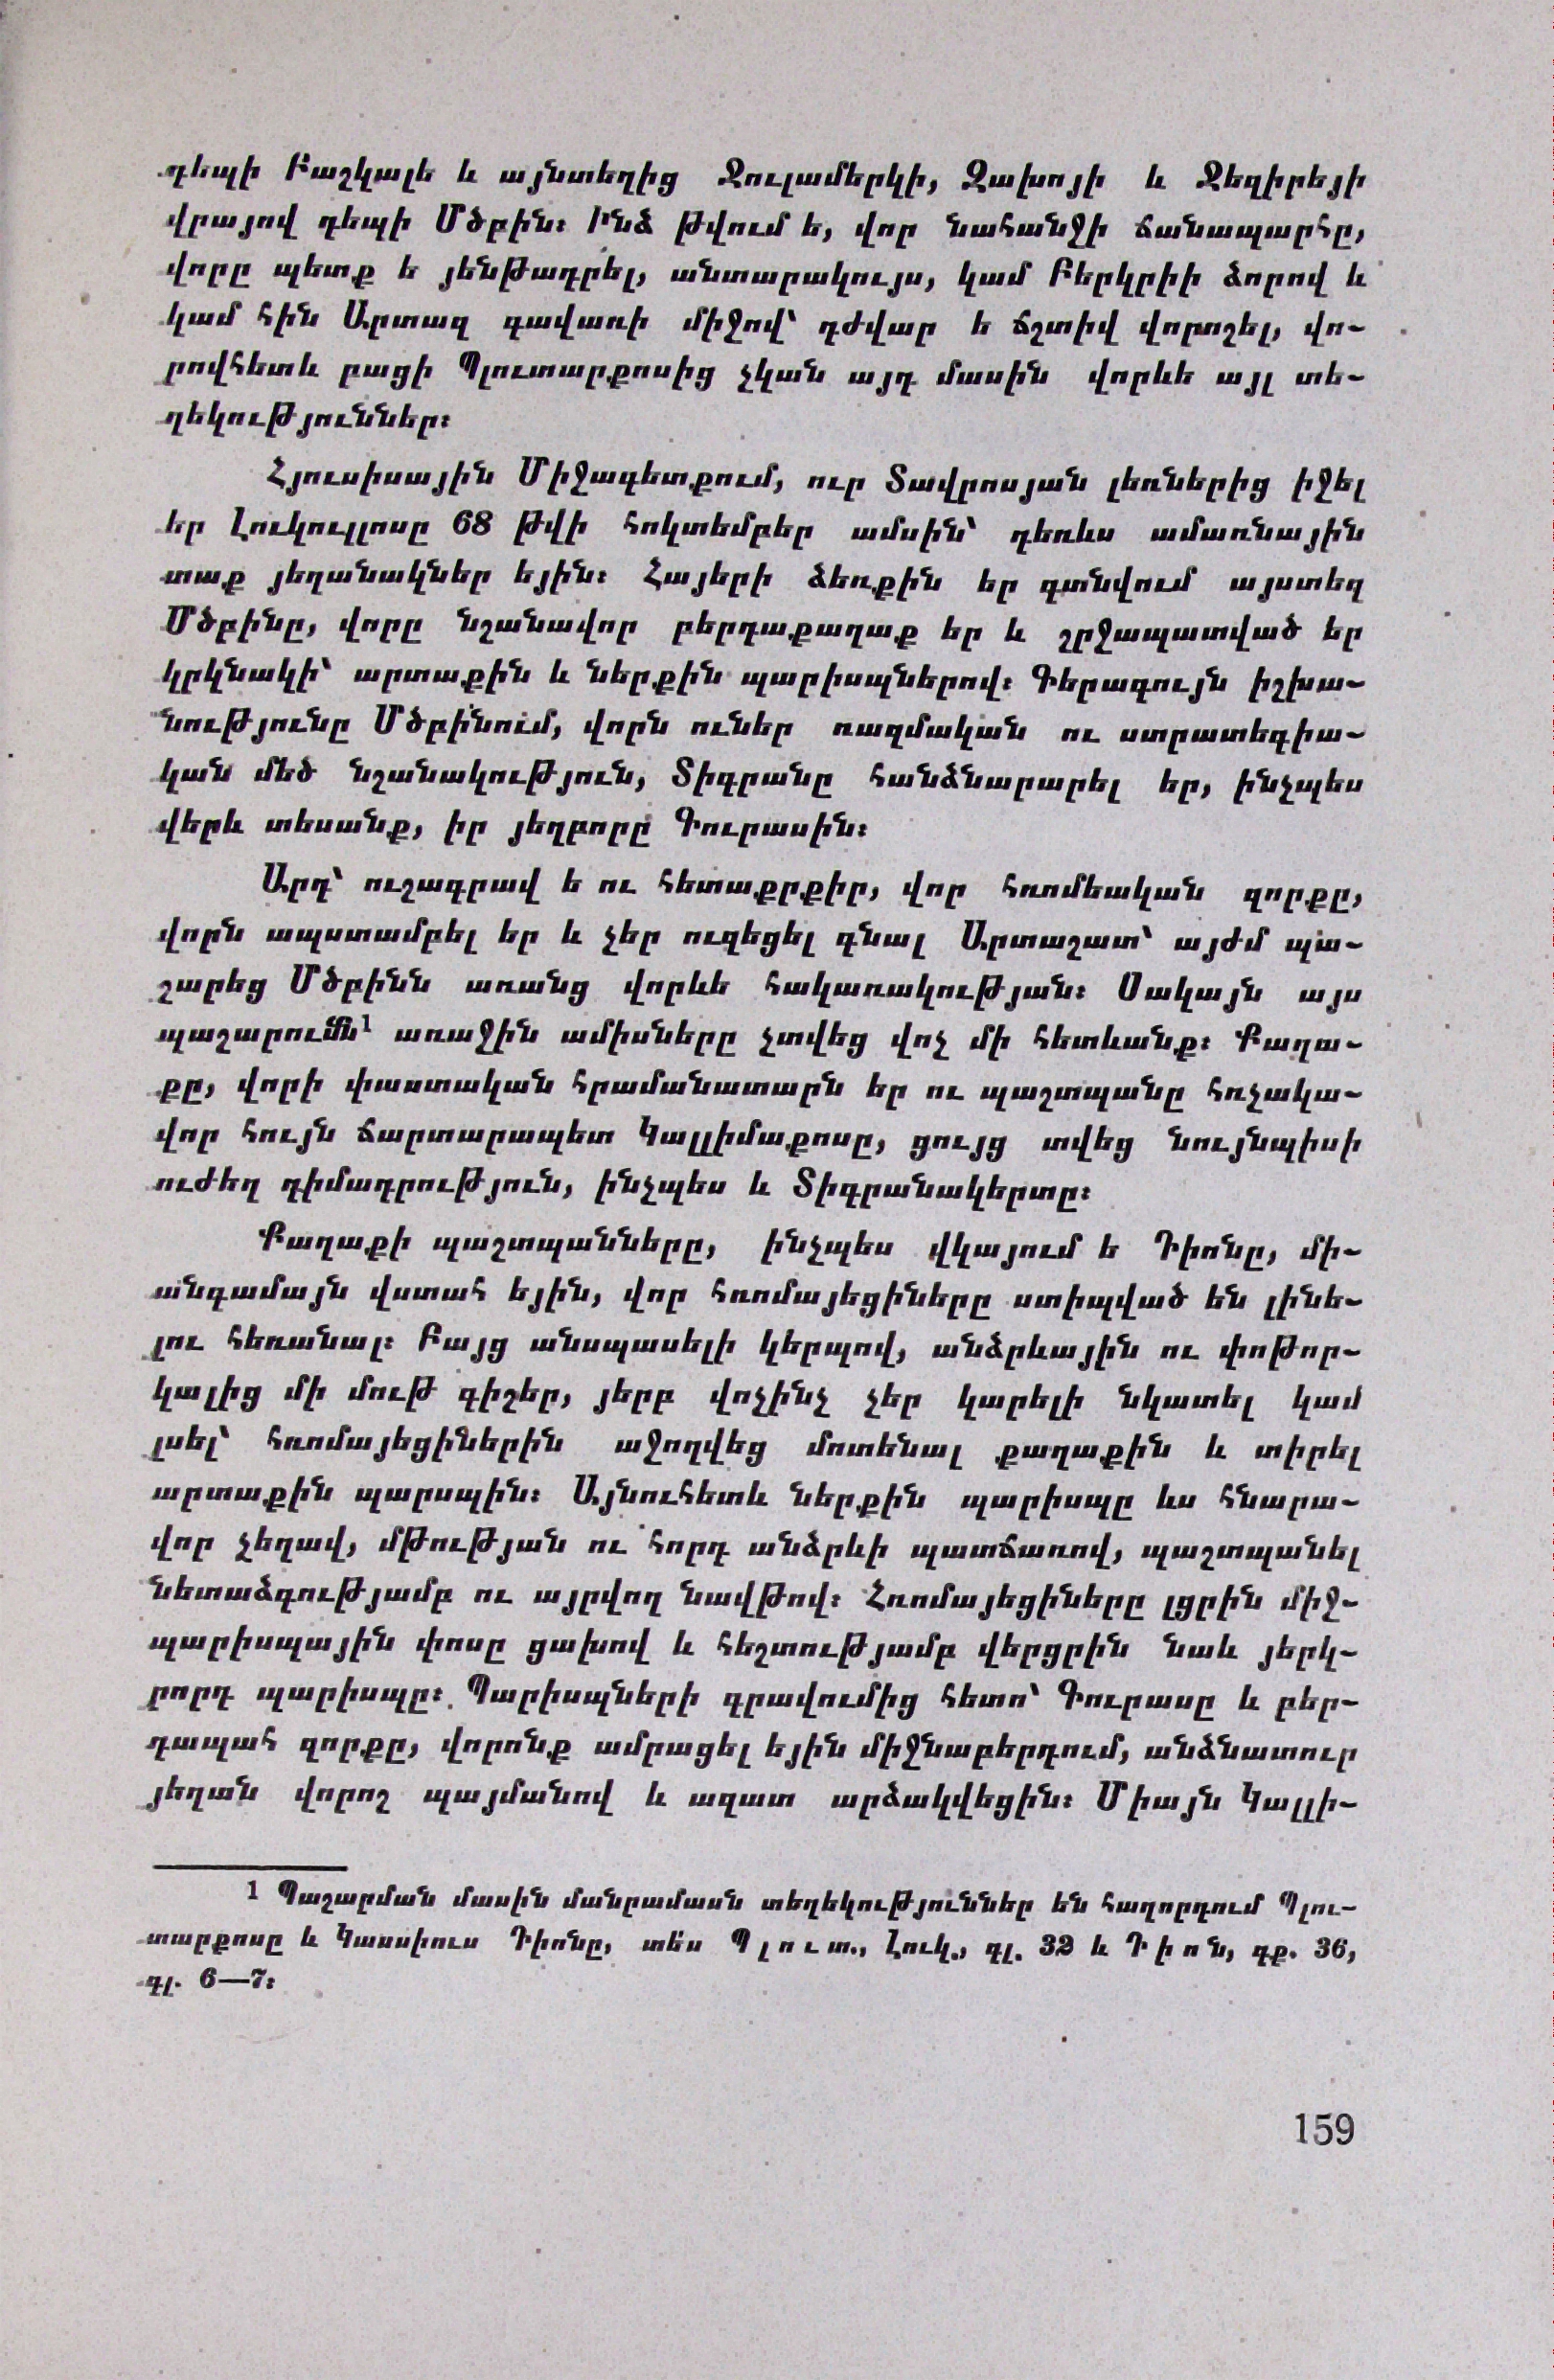 դեպի Բաշկալե և այնտեղից Ջուլամերկի, Զախոյի և Ջեզիրեյի
վրայով դեպի Մծբին։ Ինձ թվում ե, վոր նահանջի ճանապարհը,
վորը պետք ե յենթադրել, անտարակույս, կամ Բերկրիի ձորով և
կամ հին Արտազ գավառի միջով՝ դժվար ե ճշտիվ վորոշել, վո-
րովհետև բացի Պլուտարքոսից չկան այդ մասին վորևե այլ տե-
ղեկություններ։
Հյուսիսային Միջագետքում, ուր Տավրոսյան լեռներից իջել
եր Լուկուլլոսը 68 թվի հոկտեմբեր ամսին՝ դեռևս ամառնային
տաք յեղանակներ եյին։ Հայերի ձեռքին եր գտնվում այստեղ
Մծբինը, վորը նշանավոր բերդաքաղաք եր և շրջապատված եր
կրկնակի՝ արտաքին և ներքին պարիսպներով։ Գերագույն իշխա-
նությունը Մծբինում, վորն ուներ ռազմական ու ստրատեգիա-
կան մեծ նշանակություն, Տիգրանը հանձնարարել եր, ինչպես
վերև տեսանք, իր յեղբորը Գուրասին։
Արդ՝ ուշագրավ ե ու հետաքրքիր, վոր հռոմեական զորքը,
վորն ապստամբել եր և չեր ուզեցել գնալ Արտաշատ՝ այժմ պա-
շարեց Մծբինն առանց վորևե հակառակության։ Սակայն այս
պաշարումն¹ առաջին ամիսները չտվեց վոչ մի հետևանք։ Քաղա-
քը, վորի փաստական հրամանատարն եր ու պաշտպանը հռչակա-
վոր հույն ճարտարապետ Կալլիմաքոսը, ցույց տվեց նույնպիսի
ուժեղ դիմադրություն, ինչպես և Տիգրանակերտը։
Քաղաքի պաշտպանները, ինչպես վկայում ե Դիոնը, մի-
անգամայն վստահ եյին, վոր հռոմայեցիները ստիպված են լինե-
լու հեռանալ։ Բայց անսպասելի կերպով, անձրևային ու փոթոր-
կալից մի մութ գիշեր, յերբ վոչինչ չեր կարելի նկատել կամ
լսել՝ հռոմայեցիներին աջողվեց մոտենալ քաղաքին և տիրել
արտաքին պարսպին։ Այնուհետև ներքին պարիսպը ևս հնարա-
վոր չեղավ, մթության ու հորդ անձրևի պատճառով, պաշտպանել
նետաձգությամբ ու այրվող նավթով։ Հռոմայեցիները լցրին միջ-
պարիսպային փոսը ցախով և հեշտությամբ վերցրին նաև յերկ-
րորդ պարիսպը։ Պարիսպների գրավումից հետո՝ Գուրասը և բեր-
դապահ զորքը, վորոնք ամրացել եյին միջնաբերդում, անձնատուր
յեղան վորոշ պայմանով և ազատ արձակվեցին։ Միայն Կալլի-
1 Պաշարման մասին մանրամասն տեղեկություններ են հաղորդում Պլու-
տարքոսը և Կասսիուս Դիոնը, տե՛ս Պլուտ., Լուկ., գլ. 32 և Դիոն, գք. 36,
գլ. 6—7։
159